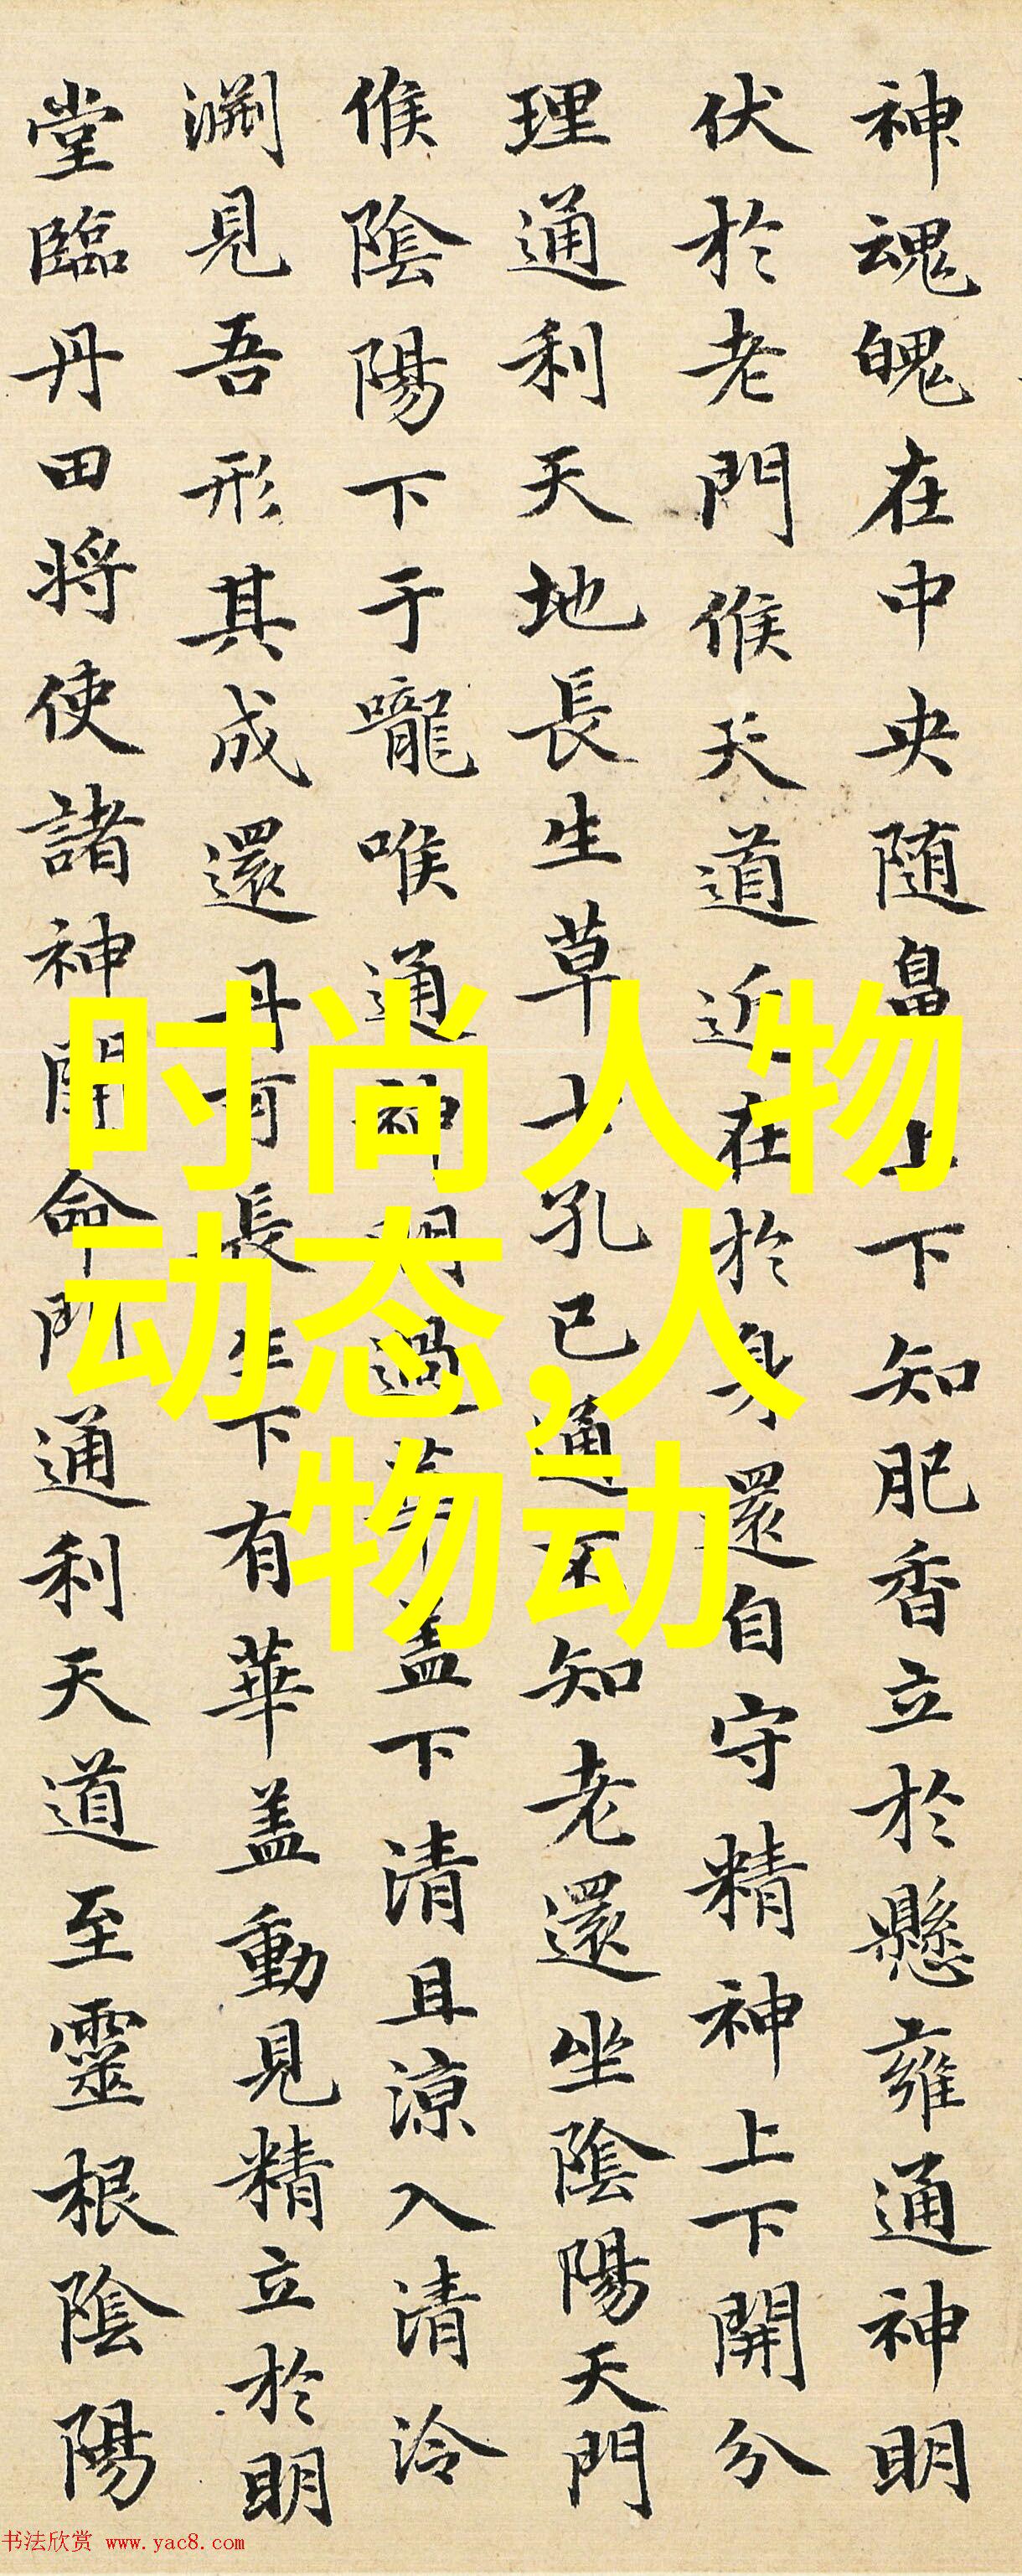 神魂魄在中央随鼻上下知肥香立於懸雍通神明
伏於老門候天道近在於身還自守精神上下開分
理通利天地長生草七孔已通不知老還坐陰陽天門
候陰陽下于嚨喉通神明過華盖下清且涼入清泠
淵見吾形其成還丹可長生下有華盖動見精立於明
堂臨丹田将使諸神開命門通利天道至靈根陰陽
时尚人物
动态,人
物动
书法欣赏 www.yac8.com